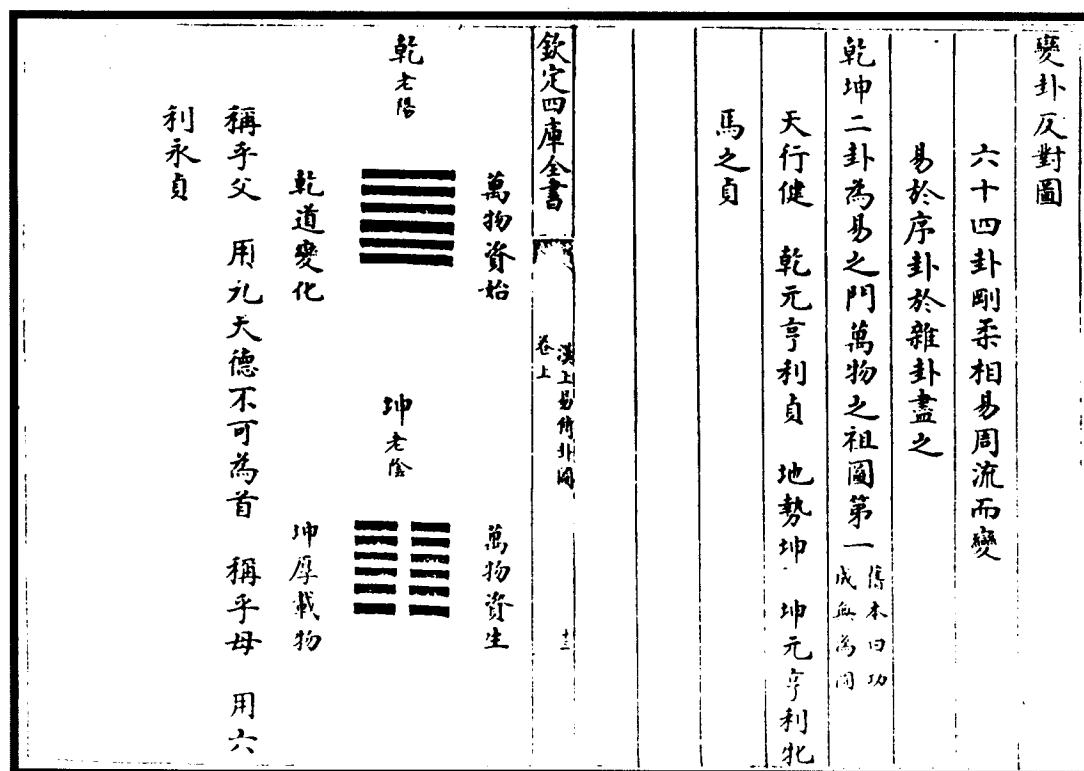 變卦反對圖
六十四卦剛柔相易周流而變
易於序卦於雜卦盡之
乾坤二卦為易之門萬物之祖圖第一 舊本曰功成無為圖
天行健 乾元亨利貞 地勢坤 坤元亨利牝
馬之貞
欽定四庫全書
漢上易傳卦圖
卷上
十二
萬物資始
乾老陽
乾道變化
萬物資生
坤老陰
坤厚載物
稱乎父 用九天德不可為首 稱乎母 用六
利永貞